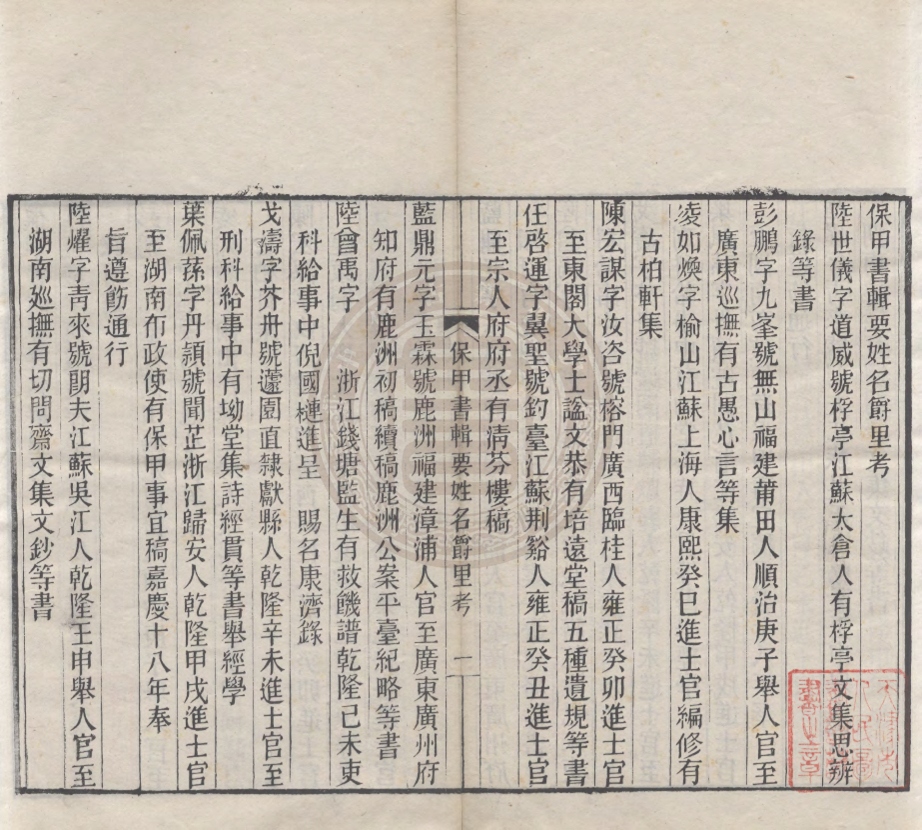 保甲書輯要姓名爵里考
陸世儀字道威號桴亭江蘇太倉人有桴亭文集思辨
錄等書
彭鵬字九峯號無山福建莆田人順治庚子舉人官至
廣東巡撫有古愚心言等集
凌如煥字榆山江蘇上海人康熙癸巳進士官編修有
古柏軒集
陳宏謀字汝咨號榕門廣西臨桂人雍正癸卯進士官
至東閣大學士諡文恭有培遠堂稿五種遺規等書
任啓運字翼聖號釣臺江蘇荆谿人雍正癸丑進士官
至宗人府府丞有清芬樓稿
保甲書輯要姓名爵里考 一
藍鼎元字玉霖號鹿洲福建漳浦人官至廣東廣州府
知府有鹿洲初稿續稿鹿洲公案平臺紀略等書
陸曾禹字 浙江錢塘監生有救饑譜乾隆己未吏
科給事中倪國槤進呈 賜名康濟錄
戈濤字芥舟號蘧園直隸獻縣人乾隆辛未進士官至
刑科給事中有坳堂集詩經貫等書舉經學
葉佩蓀字丹潁號聞芷浙江歸安人乾隆甲戌進士官
至湖南布政使有保甲事宜稿嘉慶十八年奉
旨遵飭通行
陸燿字靑來號朗夫江蘇吳江人乾隆壬申舉人官至
湖南廵撫有切問齋文集文鈔等書